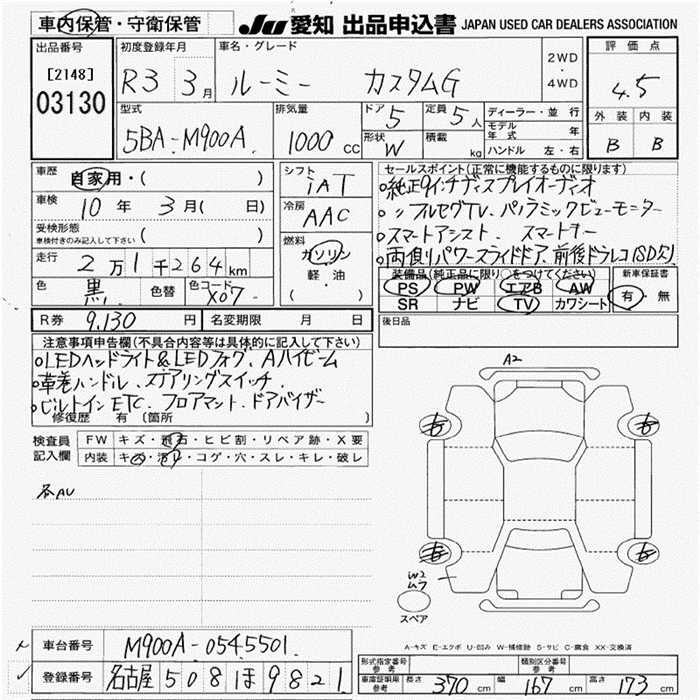 車内保管・守衛保管 JU 愛知 出品申込書 JAPAN USED CAR DEALERS ASSOCIATION
出品番号 初度登録年月 車名・グレード 2WD ・ 4WD 評価点
[2148] R3 3月 ルーミー カスタムG 4.5
03130
型式 排気量 ドア 定員 ディーラー・並行 外装 内装
5BA-M900A 1000 CC 5 5人 モデル年式 年
形状 W 積載 kg ハンドル 左・右 B B
車歴 自家用・( ) シフト iAT セールスポイント(正常に機能するものに限ります)
車検 10年 3月( 日) 冷房 AAC ○純正9インチディスプレイオーディオ
受検形態 車検付きのみ記入して下さい ( ) ○〃フルセグTV、パノラミックビューモニター
燃料 ガソリン ○スマートアシスト、スマートキー
走行 2万1千264km 軽・油 ○両側パワースライドドア、前後ドラレコ(SD欠)
( ) 装備品(純正品に限り○をつけてください) 新車保証書
色 黒 色替 色コード X07 PS PW エアB AW 有・無
SR ナビ TV カワシート
R券 9,130円 名変期限 月 日 後日品
注意事項申告欄(不具合内容等は具体的に記入して下さい)
○LEDヘッドライト&LEDフォグ、Aハイビーム
○革巻ハンドル、ステアリングスイッチ、
○ビルトインETC、フロアマット、ドアバイザー
修復歴 有 (箇所 )
検査員記入欄 FW キズ・飛石・ヒビ割・リペア跡・X要
内装 キズ・汚レ・コゲ・穴・スレ・キレ・破レ
各AU
A2
W2
ムラ
スペア
A-キズ E-エクボ U-凹み W-補修跡 S-サビ C-腐食 XX-交換済
車台番号 M900A-0545501
登録番号 名古屋 508 ほ 9821
形式指定番号 参考 類別区分番号 参考
車庫証明用 参考 長さ 370cm 幅 167cm 高さ 173cm